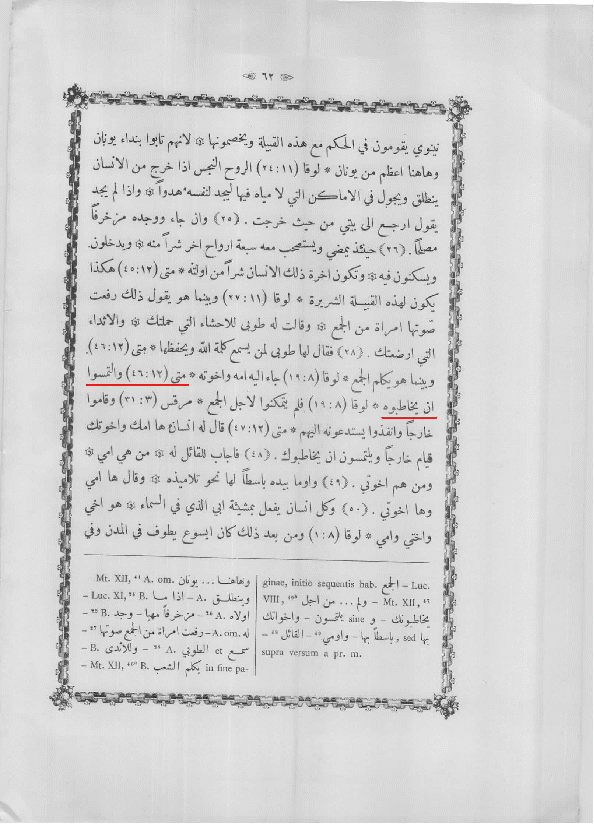 ٦٣
نينوي يقومون في الحكم مع هذه القبيلة ويخصمونها * لانهم تابوا بنداء يونان
وهاهنا اعظم من يونان * لوقا (٢٤:١١) الروح النجس اذا خرج من الانسان
ينطلق ويجول في الاماكن التي لا مياه فيها ليجد لنفسه هدوًا * واذا لم يجد
يقول ارجع الى بيتي من حيث خرجت . (٢٥) وان جاء ووجده مزخرفًا
مصلحًا . (٢٦) حينئذ يمضي ويستصحب معه سبعة ارواح اخر شرًا منه * ويدخلون
ويسكنون فيه * وتكون اخرة ذلك الانسان شرًا من اولته * متى (٤٥:١٢) هكذا
يكون لهذه القبيلة الشريرة * لوقا (٢٧:١١) وبينما هو يقول ذلك رفعت
صوتها امراة من الجمع * وقالت له طوبى للاحشاء التي حملتك * والاثداء
التي ارضعتك . (٢٨) فقال لها طوبى لمن يسمع كلمة الله ويحفظها * متى (٤٦:١٢)
وبينما هو يكلم الجمع * لوقا (١٩:٨) جاء اليه امه واخوته * متى (٤٦:١٢) والتمسوا
ان يخاطبوه * لوقا (١٩:٨) فلم يتمكنوا لاجل الجمع * مرقس (٣١:٣) وقاموا
خارجًا وانفذوا يستدعونه اليهم * متى (٤٧:١٢) قال له انسان ها امك واخوتك
قيام خارجًا ويلتمسون ان يخاطبوك . (٤٨) فاجاب للقائل له * من هي امي *
ومن هم اخوتي . (٤٩) واوما بيده باسطًا لها نحو تلاميذه * وقال ها امي
وها اخوتي . (٥٠) وكل انسان يفعل بمشيئة ابي الذي في السماء * هو اخي
واختي وامي * لوقا (١:٨) ومن بعد ذلك كان ايسوع يطوف في المدن وفي
Mt. XII, ⁴¹ A. om. وهاهنا ... يونان
– Luc. XI, ²⁴ B. اذا ما – A. وينطلق
– ²⁵ B. مزخرفًا مهيا – وجد – ²⁶ A. اولاه
– ²⁷ A. om. رفعت امراة من الجمع صوتها – له
– B. وللاثدى – ²⁸ A. الطوبي et سمع
– Mt. XII, ⁴⁶ B. يكلم الشعب in fine pa-
ginae, initio sequentis hab. الجمع – Luc.
VIII, ¹⁹ᵇ ولم ... من اجل – Mt. XII, ⁴⁷
واخواتك – يلتمسون sine و – يخاطبونك
– ⁴⁸ القائل – ⁴⁹ واومي – باسطًا بها, sed بها
supra versum a pr. m.